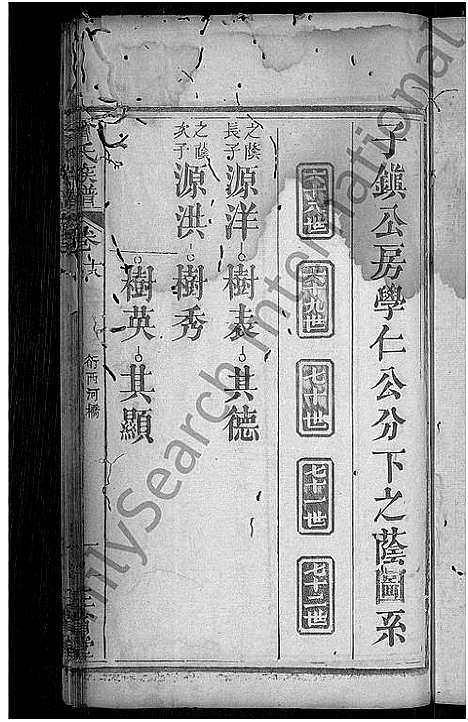 子鎮公房學仁公分下之蔭圖系
六十八世
六十九世
七十世
七十一世
七十二世
之蔭長子 源洋 樹表 其德
之蔭次子 源洪 樹秀
樹英 其顯
氏族譜
卷
衍西河橋
FamilySearch International